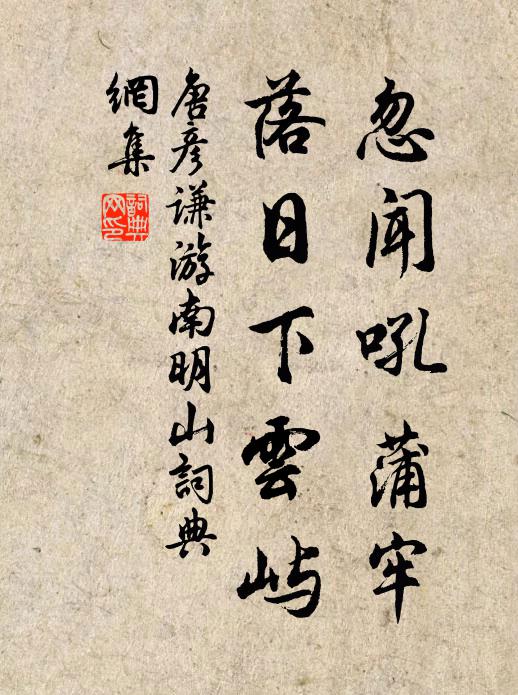 忽聞吼蒲牢
落日下雲屿
唐彦谦游南明山詞典
網集
詞典
网印